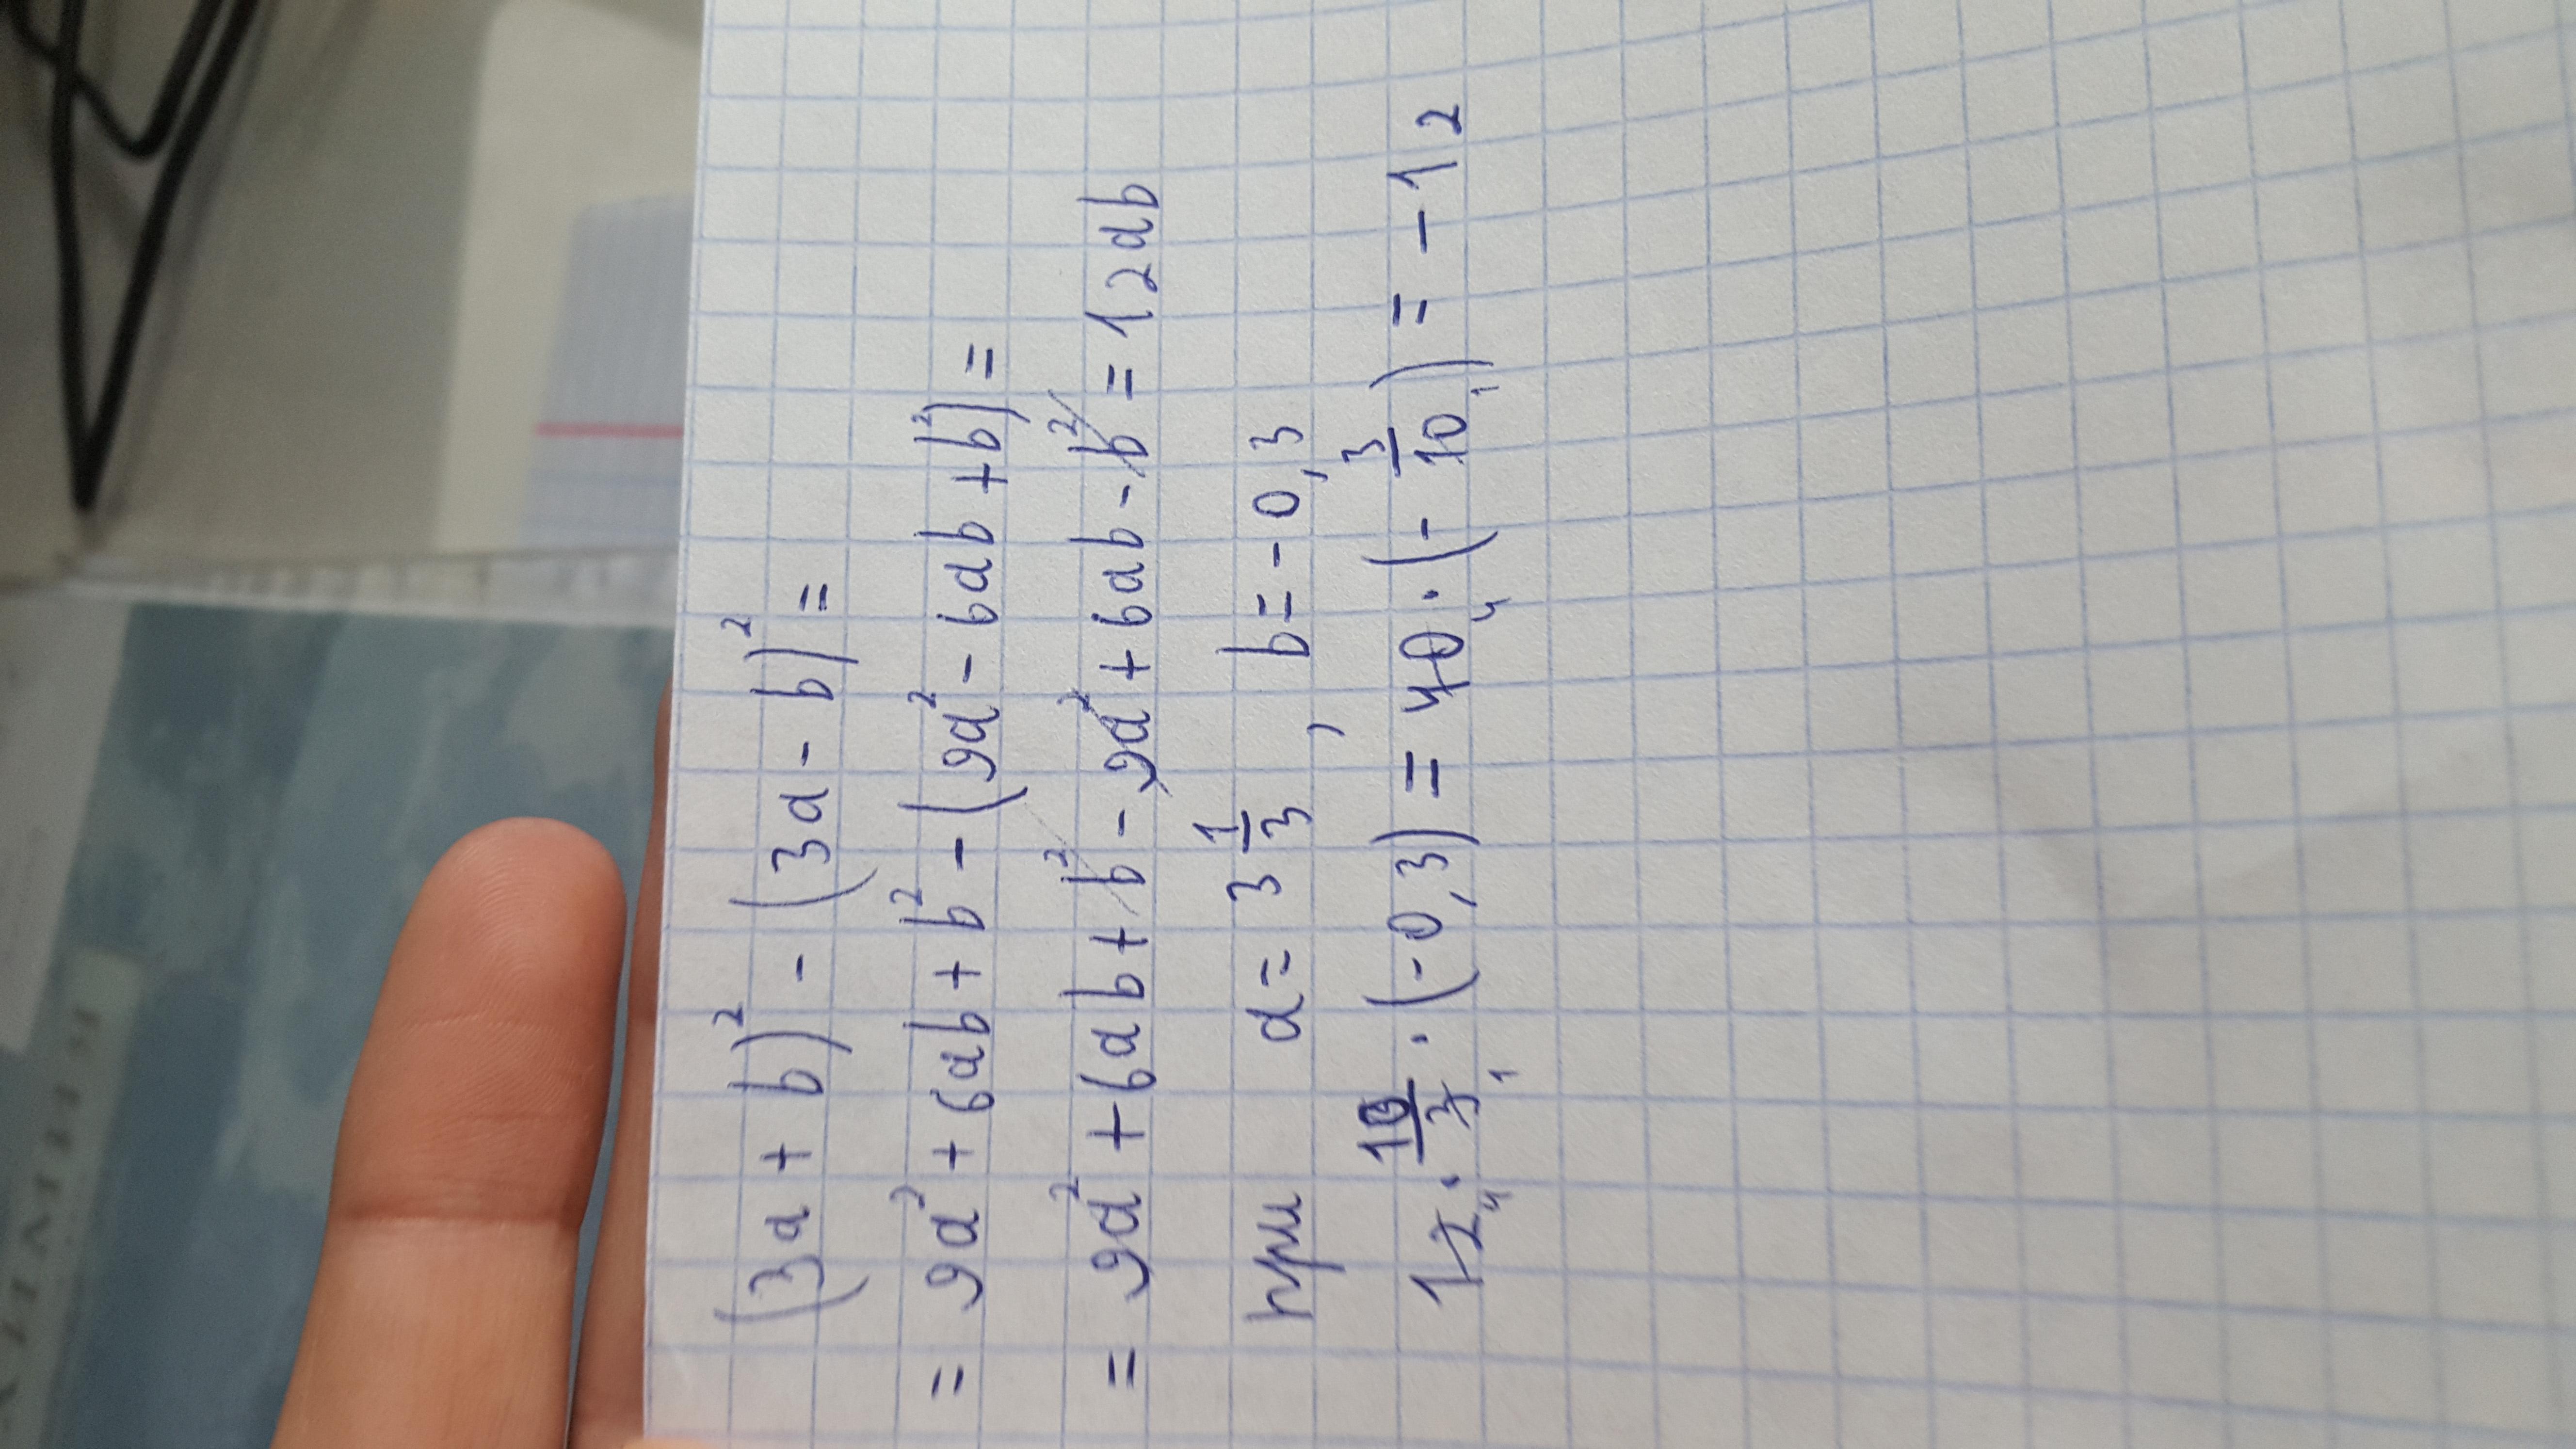 (3a + b)² - (3a - b)² =
= 9a² + 6ab + b² - (9a² - 6ab + b²) =
= 9a² + 6ab + b² - 9a² + 6ab - b² = 12ab
при a = 3 1/3, b = -0,3
12 4 · 10/3 1 · (-0,3) = 40 4 · (- 3/10 1) = -12